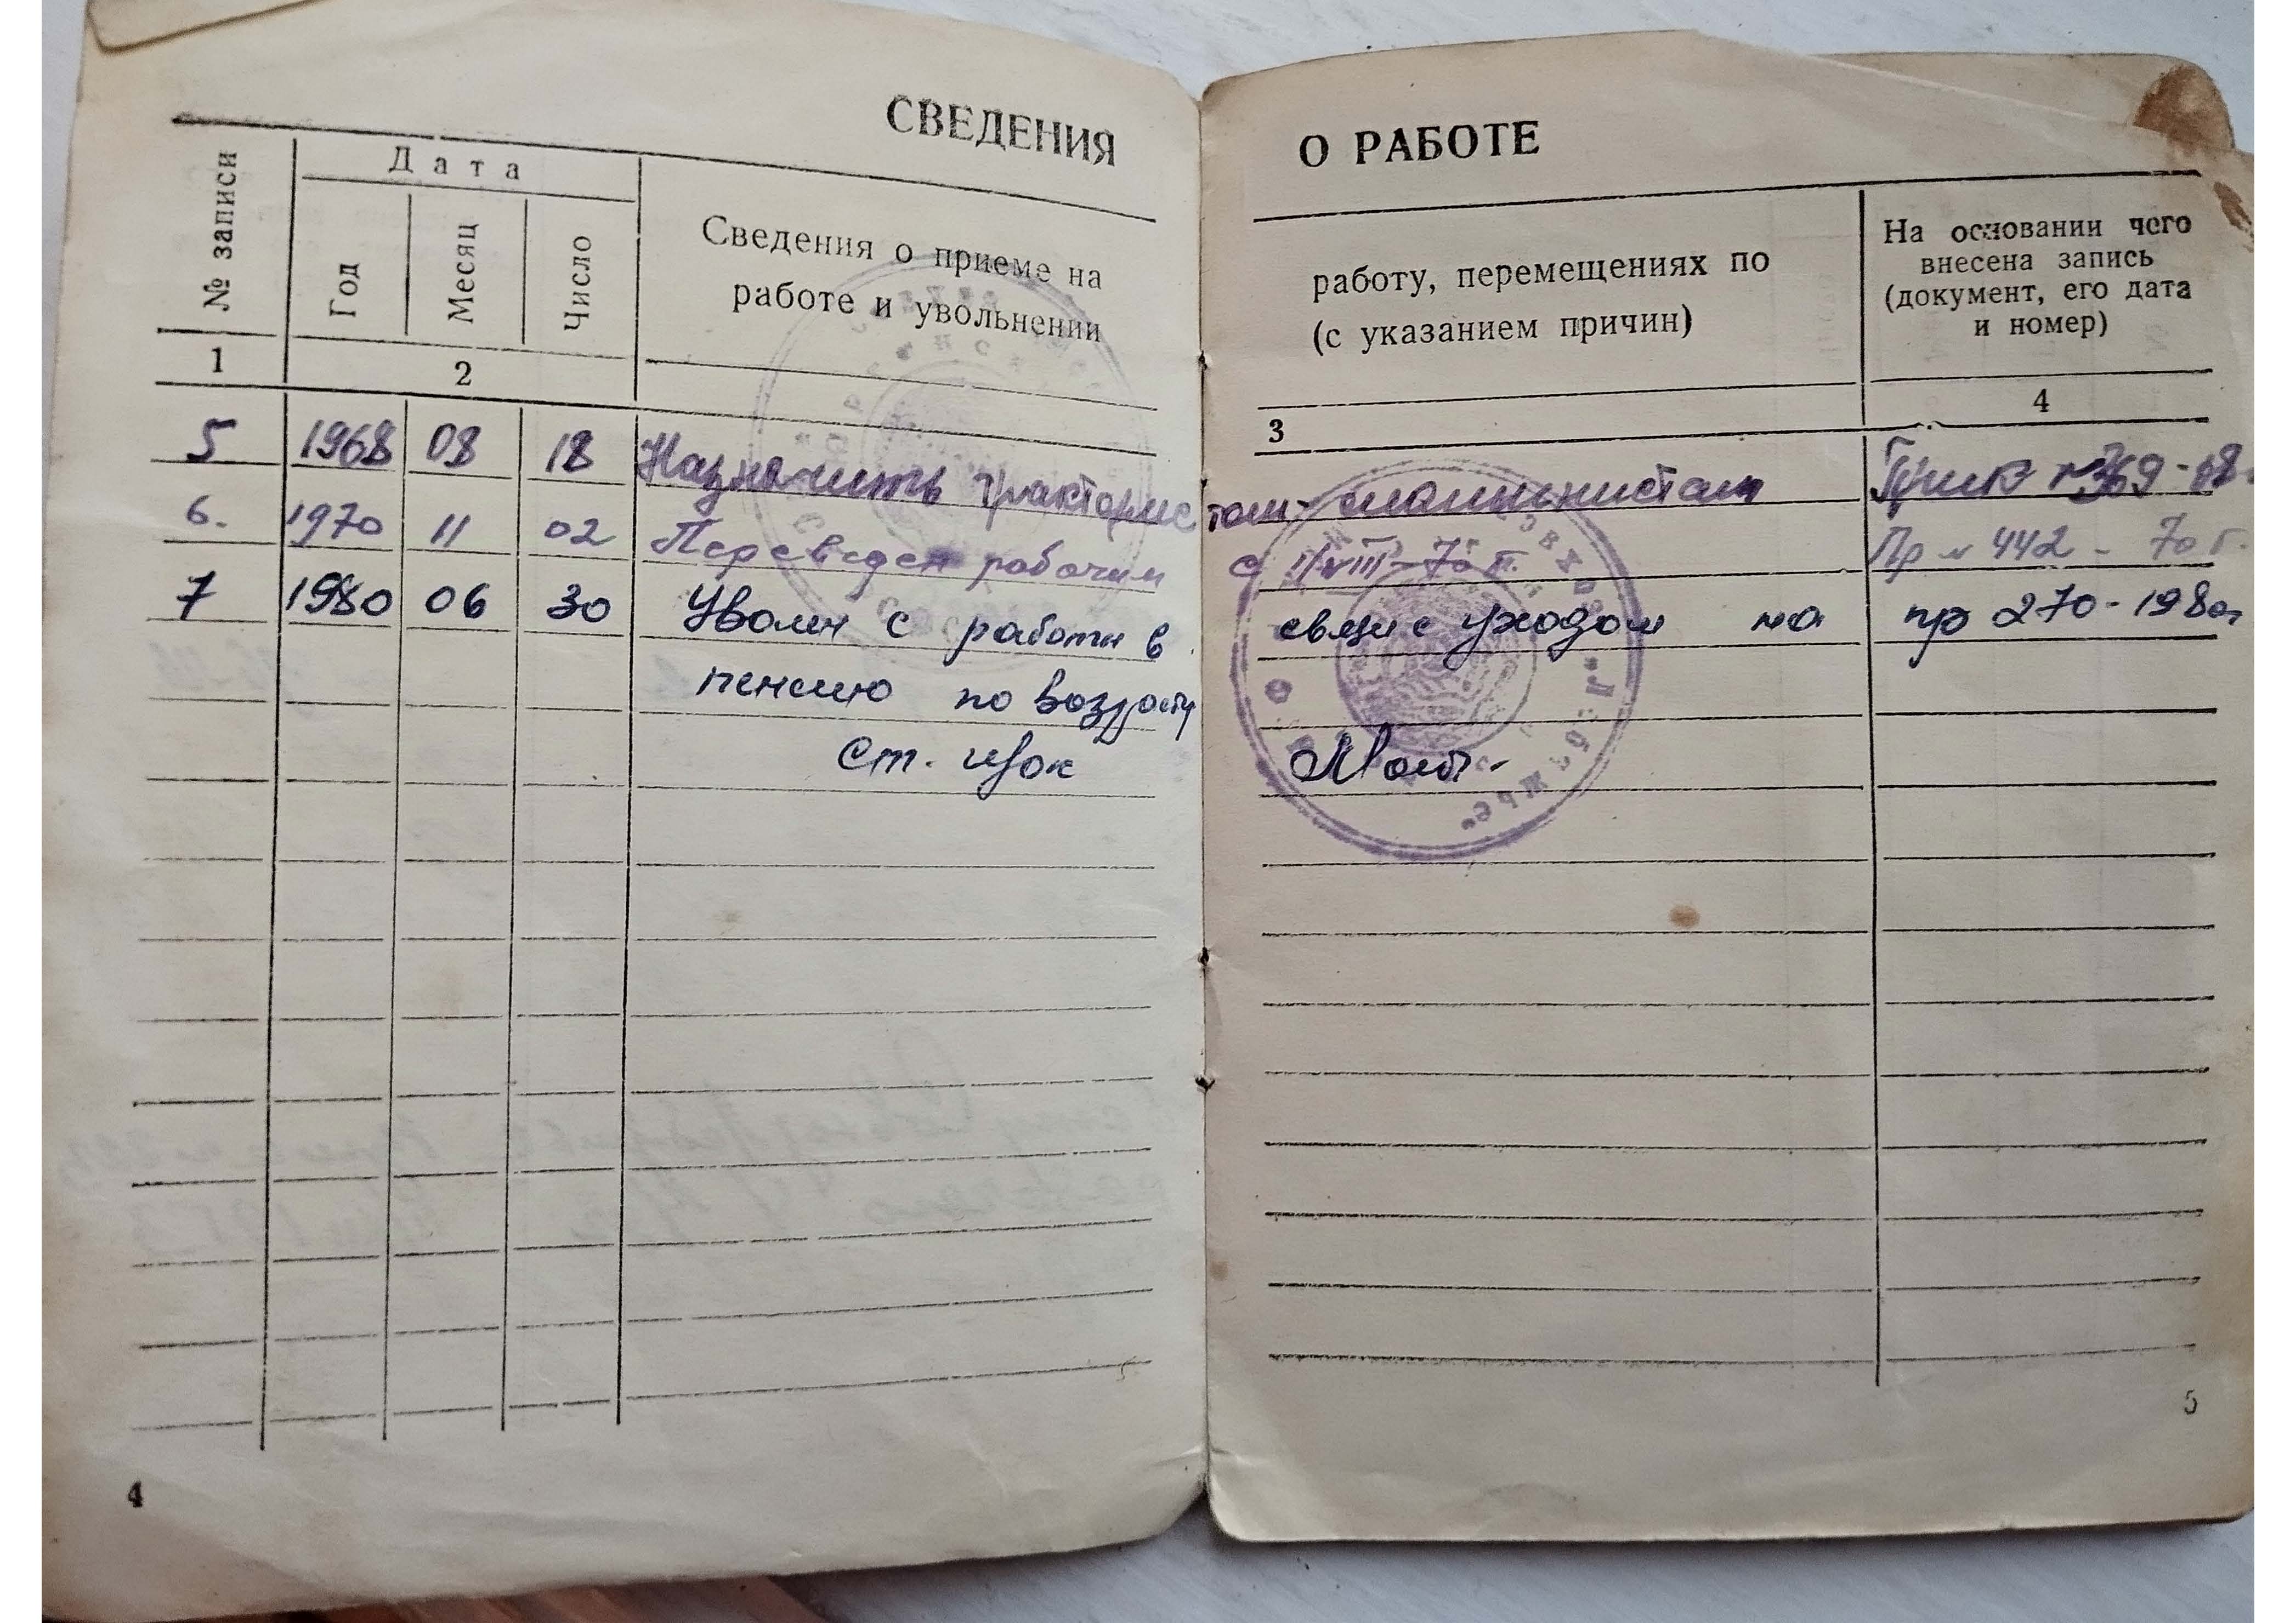 СВЕДЕНИЯ О РАБОТЕ
№ записи
Дата
Год
Месяц
Число
Сведения о приеме на работу, перемещениях по
работе и увольнении (с указанием причин)
На основании чего
внесена запись
(документ, его дата
и номер)
1 2 3 4
5 1968 08 18 Назначить трактористом-машинистом №369-68
6. 1970 11 02 Переведен рабочим с 70 г. Пр № 442 - 70 г.
7 1980 06 30 Уволен с работы в связи с уходом на пр 270-1980г
пенсию по возрасту
Ст.
4
5